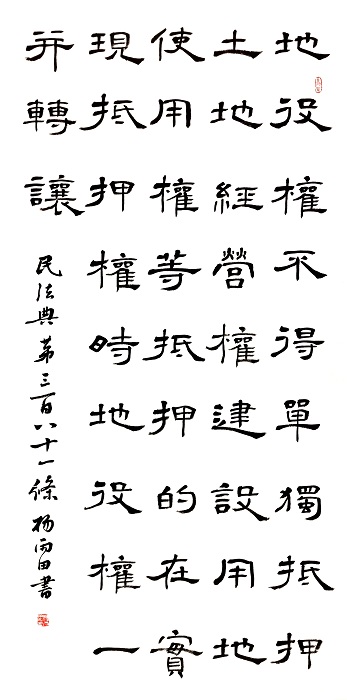 地役權不得單獨抵押
土地經營權建設用地
使用權等抵押的在實
現抵押權時地役權一
并轉讓
民法典第三百八十一條 楊雨田書